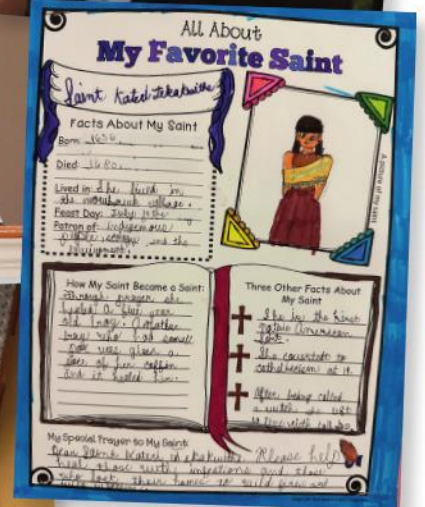 All About
My Favorite Saint
Saint Kateri Tekakwitha
Facts About My Saint
Born: 1656
Died: 1680
Lived in: She lived in
the village.
Feast Day: July
Patron of: indigenous
people, ecology and the
A picture of my saint
How My Saint Became a Saint:
Through prayer she
healed a five year
old boy. Another
boy who had small
pox was given a
of her coffin
and it healed him.
Three Other Facts About
My Saint
She is the first
native American
She to
at
After being called
a witch she left
to live with
My Special Prayer to My Saint:
Dear Saint Kateri Please help
heal those with infections and those
who lost their homes to and